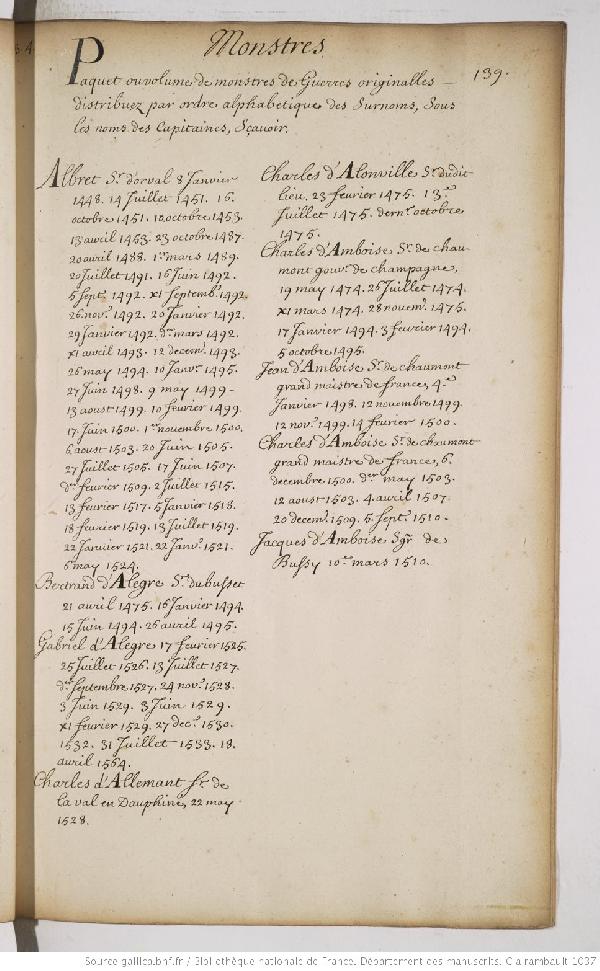 Monstres
139.
Paquet ou volume de monstres de Guerres originalles
distribuez par ordre alphabetique des Surnoms, Sous
les noms des Capitaines, Sçavoir.
Albret Sr. d'orval 8 Janvier
1448. 14 Juillet 1451. 16.
octobre 1451. 10 octobre 1453.
13 avril 1463. 23 octobre 1487.
20 avril 1488. 1er mars 1489.
20 Juillet 1491. 16 Juin 1492.
5 Sept. 1492. XI Septemb. 1492.
26 nov. 1492. 20 Janvier 1492.
29 Janvier 1492. der mars 1492.
XI avril 1493. 12 decem. 1493.
26 may 1494. 10 Janv. 1495.
27 Juin 1498. 9 may 1499.
13 aoust 1499. 10 fevrier 1499.
17 Juin 1500. 1er novembre 1500.
6 aoust 1503. 20 Juin 1505.
27 Juillet 1505. 17 Juin 1507.
der fevrier 1509. 2 Juillet 1515.
13 fevrier 1517. 5 Janvier 1518.
18 fevrier 1519. 13 Juillet 1519.
22 Janvier 1521. 22 Janv. 1521.
6 may 1524.
Bertrand d'Alegre Sr. du busset
21 avril 1475. 16 Janvier 1494.
15 Juin 1494. 26 avril 1495.
Gabriel d'Alegre 17 fevrier 1525.
25 Juillet 1526. 13 Juillet 1527.
der Septembre 1527. 24 nov. 1528.
3 Juin 1529. 3 Juin 1529.
XI fevrier 1529. 27 dec. 1530.
1532. 31 Juillet 1533. 18.
avril 1564.
Charles d'Allemant Sr. de
la val en Dauphiné, 22 may
1528.
Charles d'Alonville Sr. dudit
lieu. 23 fevrier 1475. 13e
Juillet 1475. dern. octobre
1475.
Charles d'Amboise Sr. de chau-
mont gouv. de champagne,
19 may 1474. 26 Juillet 1474.
XI mars 1474. 28 novem. 1475.
17 Janvier 1494. 3 fevrier 1494.
5 octobre 1495.
Jean d'Amboise Sr. de chaumont
grand maistre de france, 4.e
Janvier 1498. 12 novembre 1499.
12 nov. 1499. 14 fevrier 1500.
Charles d'Amboise Sr. de chaumont
grand maistre de france, 6.
decembre 1500. der may 1503.
12 aoust 1503. 4 avril 1507.
20 decem. 1509. 5 Sept. 1510.
Jacques d'Amboise Sgr. de
Bussy 10e mars 1510.
Source gallica.bnf.fr / Bibliothèque nationale de France. Département des manuscrits. Clairambault 1037